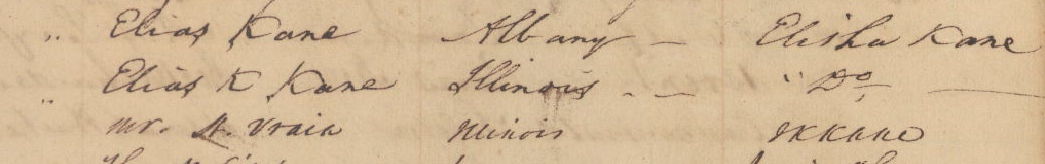 " Elias Kane Albany — Elisha Kane
" Elias K Kane Illinois - — " Do —
mr. St. Vrain Illinois JKKane